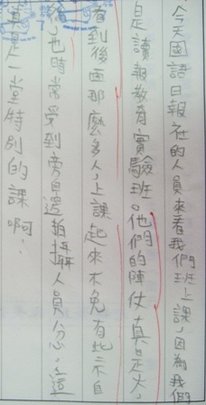 今天國語日報社的人員來看我們班上課，因為我們
是讀報教育實驗班。他們的陣仗真是大，
看到後面那麼多人，上課起來不免有些不自
也時常受到旁邊拍攝人員分心，這
真是一堂特別的課啊！